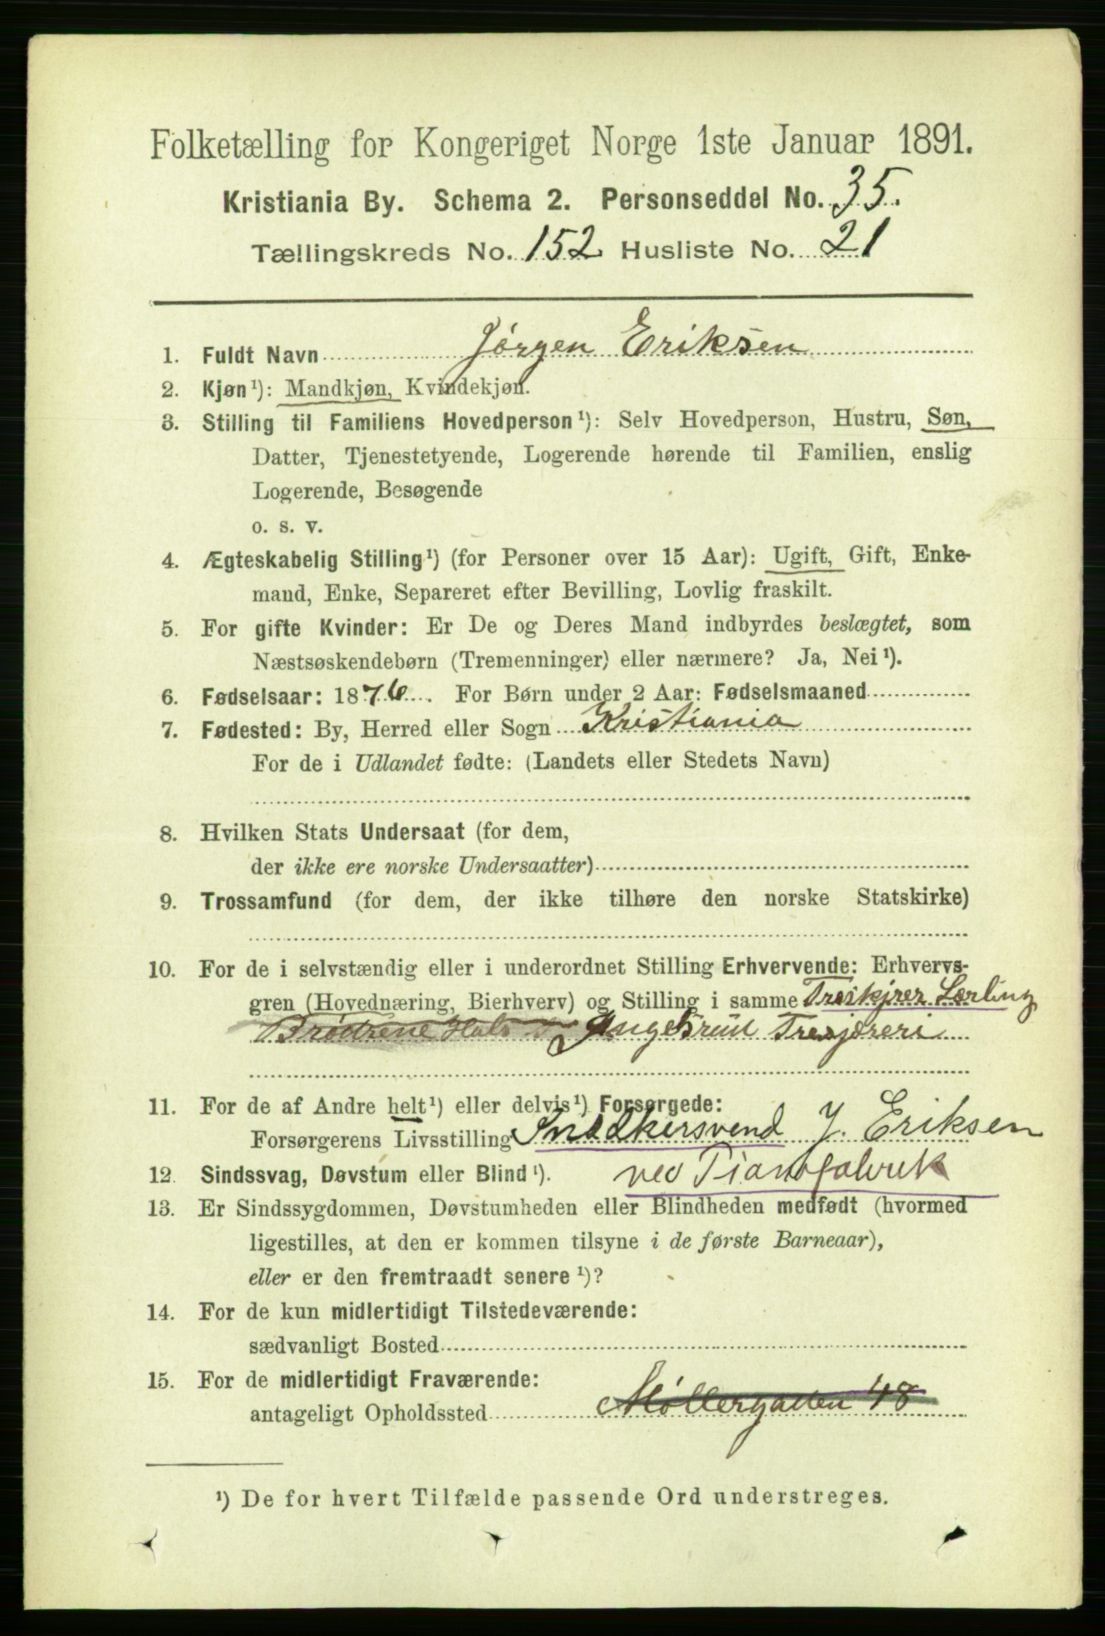 Folketælling for Kongeriget Norge 1ste Januar 1891.
Kristiania By. Schema 2. Personseddel No. 35.
Tællingskreds No. 152 Husliste No. 21
1. Fuldt Navn Jørgen Eriksen
2. Kjøn¹): Mandkjøn, Kvindekjøn.
3. Stilling til Familiens Hovedperson¹): Selv Hovedperson, Hustru, Søn,
Datter, Tjenestetyende, Logerende hørende til Familien, enslig
Logerende, Besøgende
o. s. v.
4. Ægteskabelig Stilling¹) (for Personer over 15 Aar): Ugift, Gift, Enke-
mand, Enke, Separeret efter Bevilling, Lovlig fraskilt.
5. For gifte Kvinder: Er De og Deres Mand indbyrdes beslægtet, som
Næstsøskendebørn (Tremenninger) eller nærmere? Ja, Nei¹).
6. Fødselsaar: 1876. For Børn under 2 Aar: Fødselsmaaned
7. Fødested: By, Herred eller Sogn Kristiania
For de i Udlandet fødte: (Landets eller Stedets Navn)
8. Hvilken Stats Undersaat (for dem,
der ikke ere norske Undersaatter)
9. Trossamfund (for dem, der ikke tilhøre den norske Statskirke)
10. For de i selvstændig eller i underordnet Stilling Erhvervende: Erhvervs-
gren (Hovednæring, Bierhverv) og Stilling i samme Treskjrer Lærling
Brødrene Hals Tresjæreri
11. For de af Andre helt¹) eller delvis¹) Forsørgede:
Forsørgerens Livsstilling Snedkersvend J. Eriksen
12. Sindssvag, Døvstum eller Blind¹). ved Pianofabrik
13. Er Sindssygdommen, Døvstumheden eller Blindheden medfødt (hvormed
ligestilles, at den er kommen tilsyne i de første Barneaar),
eller er den fremtraadt senere¹)?
14. For de kun midlertidigt Tilstedeværende:
sædvanligt Bosted
15. For de midlertidigt Fraværende:
antageligt Opholdssted Møllergatten 48
¹) De for hvert Tilfælde passende Ord understreges.